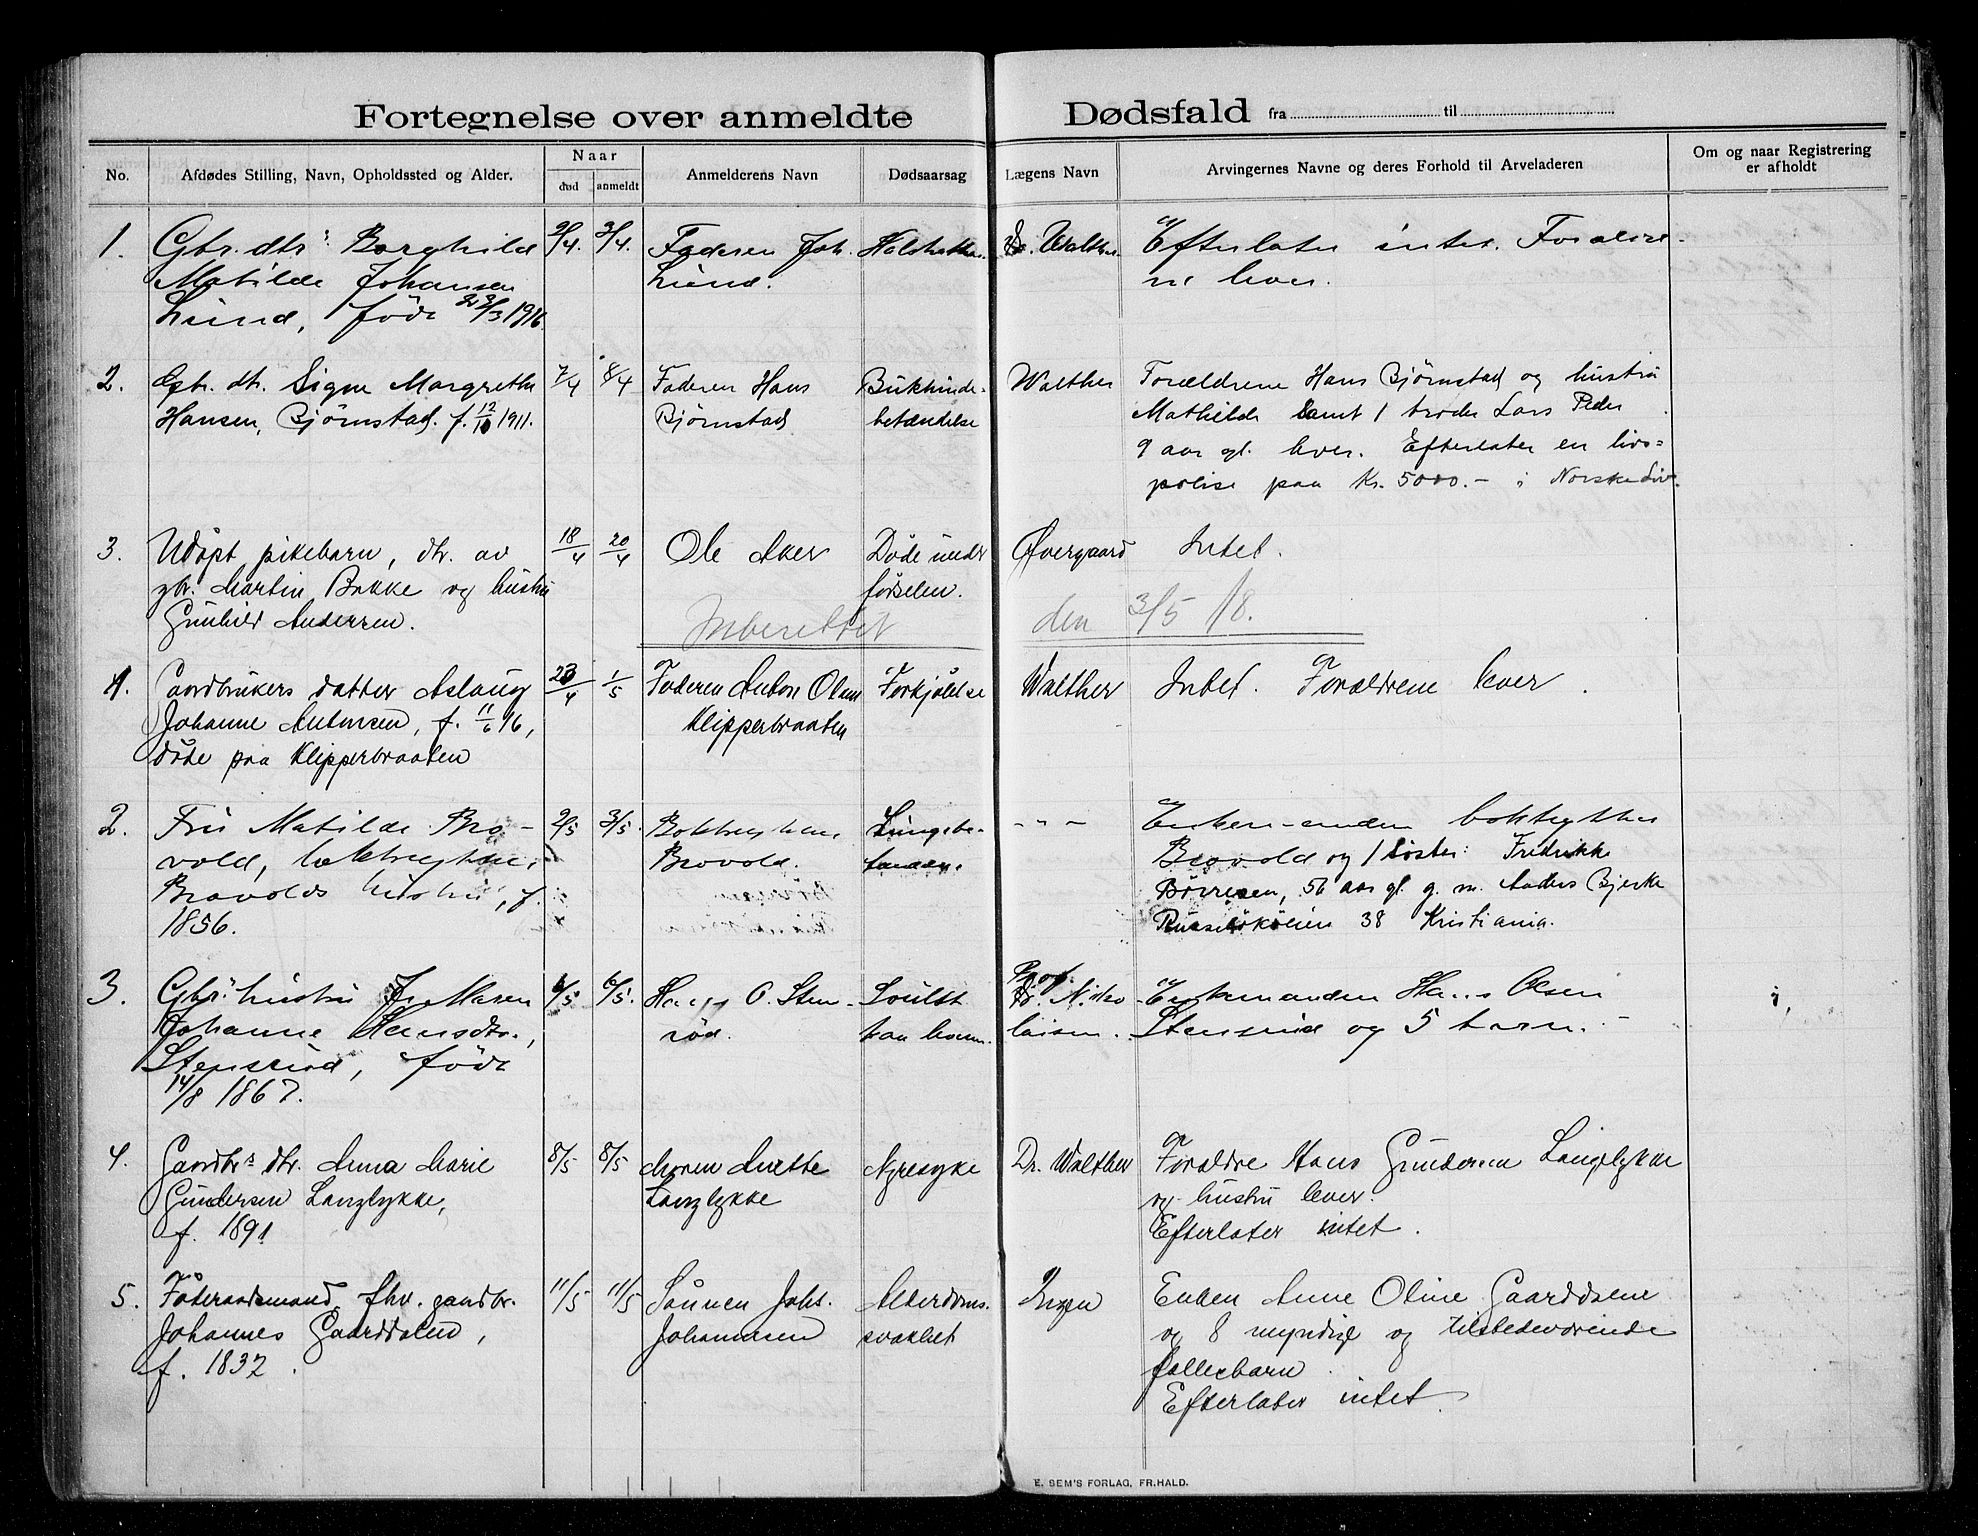 Fortegnelse over anmeldte Dødsfald fra til
No.
Afdødes Stilling, Navn, Opholdssted og Alder.
Naar
død
anmeldt
Anmelderens Navn
Dødsaarsag
Lægens Navn
Arvingernes Navne og deres Forhold til Arveladeren
Om og naar Registrering
er afholdt
1. Gbr. dtr. Borghild 2/4. 3/4. Faderen Joh. Dr. Walther Efterlater intet. Forældre-
Matilde Johansen Lund. ne lever.
Lund, född 22/3 1916.
2. Gbr. dtr. Signe Margrethe 7/4 8/4 Faderen Hans Bukhinde- Walther Forældrene Hans Bjørnstad og hustru
Hansen, Bjørnstad. f. 12/10 1911. Bjørnstad betændelse Mathilde samt 1 broder Lars Peder
9 aar gl. lever. Efterlater en livs=
polise paa Kr. 5000.- i Norske Liv.
3. Udøpt pikebarn, dtr. av 18/4 20/4 Ole Aker Døde under Øvergaard Intet.
gbr. Martin Bakke og hustru førselen.
Gunhild Andersen.
Inberettet den 3/5 18.
1. Gaardbrukers datter Aslaug 23/4 1/5 Faderen Anton Olsen Forkjølelse Walther Intet. Forældrene lever.
Johanne Antonsen, f. 11/6 16, Klipperbraaten
døde paa Klipperbraaten
2. Fru Matilde Bro- 2/5 3/5 Boktrykker Lungebe- - " - Enkemanden boktrykker
vold, boktrykker Brovold. Brovold og 1 søster: Fredrikke
Brovolds hustru, f. Børresen, 56 aar gl. g. m. Anders Bjerke
1856. 38 Kristiania.
3. Gbr. hustru Maren 6/5 6/5. Hans O. Sten- Svulst Prof. Dr. Niko- Enkemanden Hans Olsen
Johanne Hansdtr., rød. laisen. Stensrud og 5 barn.
Stensrud, född
14/8 1867.
4. Gaardbrs dtr. Anna Marie 8/5 8/5 Moren Anette Nyresyke Dr. Walther Forældre Hans Gundersen Langlykke
Gundersen Langlykke, Langlykke og hustru lever.
f. 1891 Efterlater intet.
5. Föderaadsmand, fhv. gaardbr. 11/5 11/5 Sönnen Johs. Alderdoms- Ingen Enken Anne Oline Gaarddalen
Johannes Gaarddalen, Johannesen svakhet og 8 myndige og tilstedeværende
f. 1832. fællesbarn.
Efterlater intet.
E. SEM'S FORLAG, FR.HALD.